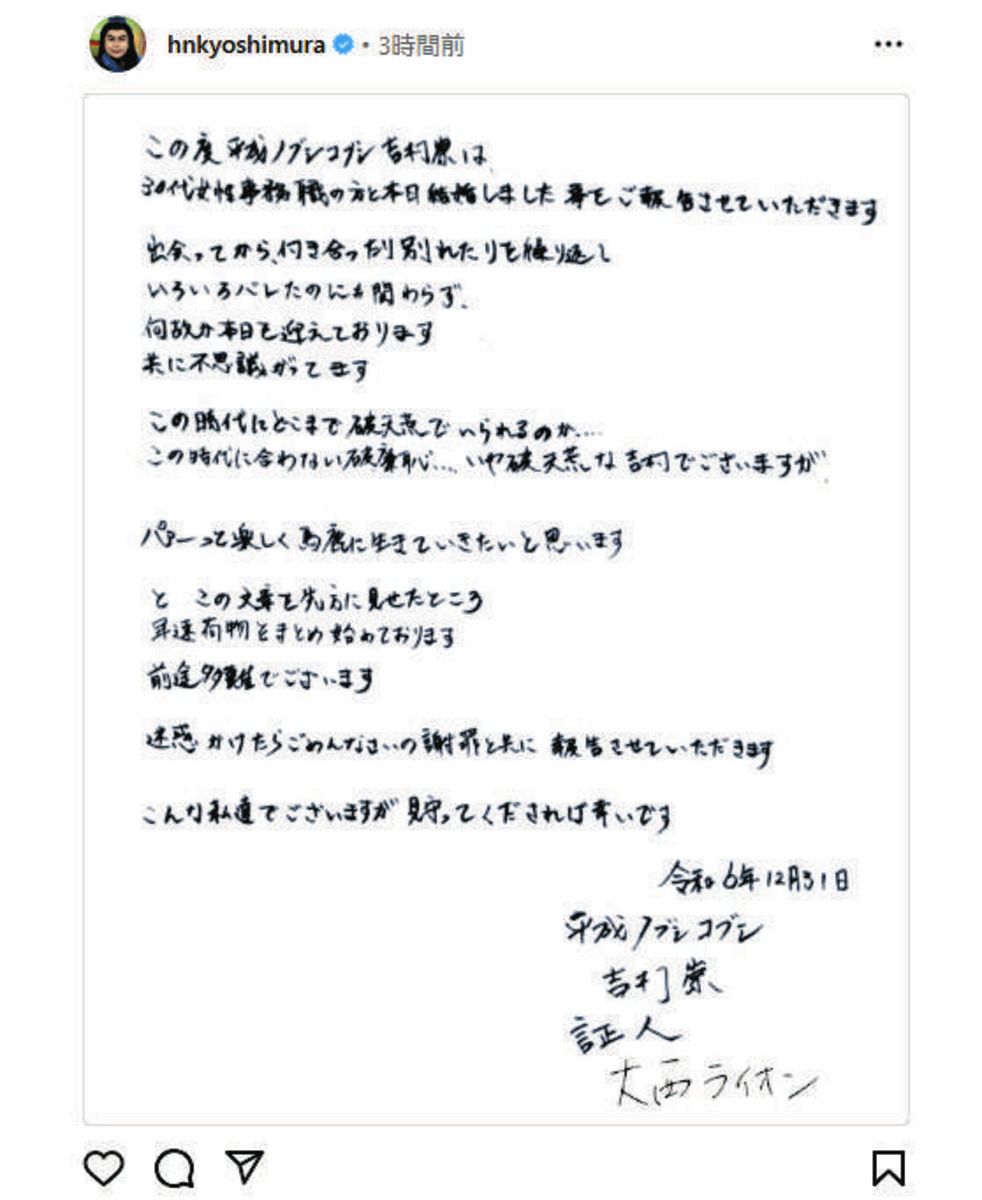 hnkyoshimura • 3時間前
この度 平成ノブシコブシ 吉村崇は、
30代女性事務職の方と本日結婚しました事をご報告させていただきます
出会ってから、付き合ったり別れたりを繰り返し
いろいろバレたのにも関わらず、
何故か本日を迎えております
共に不思議がってます
この時代にどこまで破天荒でいられるのか....
この時代に合わない破廉恥.... いや破天荒な吉村でございますが
パァーっと楽しく馬鹿に生きていきたいと思います
と この文章を先方に見せたところ
早速荷物をまとめ始めております
前途多難でございます
迷惑かけたらごめんなさいの謝罪と共に 報告させていただきます
こんな私達でございますが 見守ってくだされば幸いです
令和6年12月31日
平成ノブシコブシ
吉村崇
証人
大西ライオン